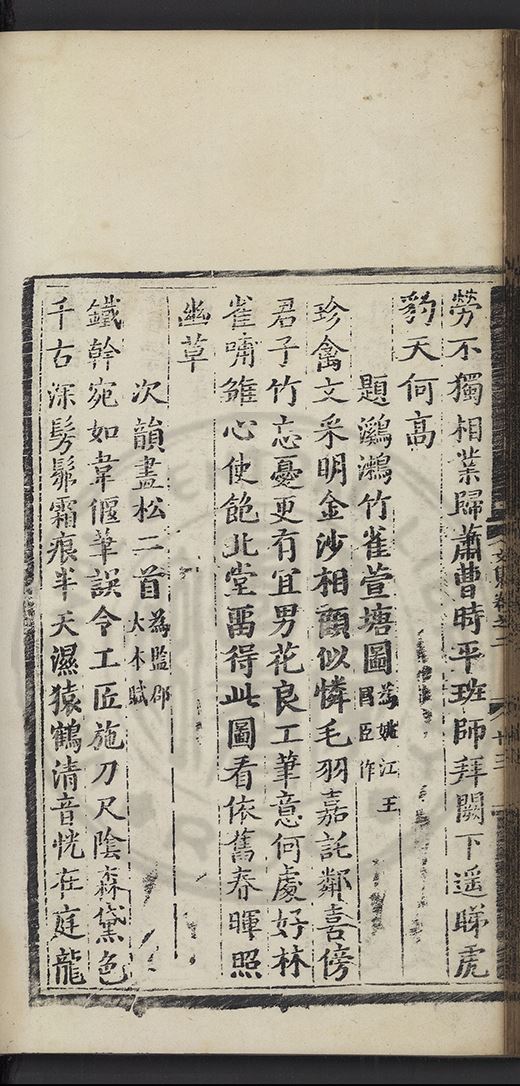 勞不獨相業歸蕭曹時平班師拜闕下遥睇虎
豹天何高
題鸂鶒竹雀萱塘圖為姚江王國臣作
珍禽文采明金沙相顧似憐毛羽嘉託鄰喜傍
君子竹忘憂更有宜男花良工筆意何處好林
雀哺雛心使飽北堂畱得此圖看依舊春暉照
幽草
次韻畫松二首為監郡大本賦
鐵幹宛如韋偃筆誤令工匠施刀尺陰森黛色
千古深髣髴霜痕半天濕猿鶴清音恍在庭龍